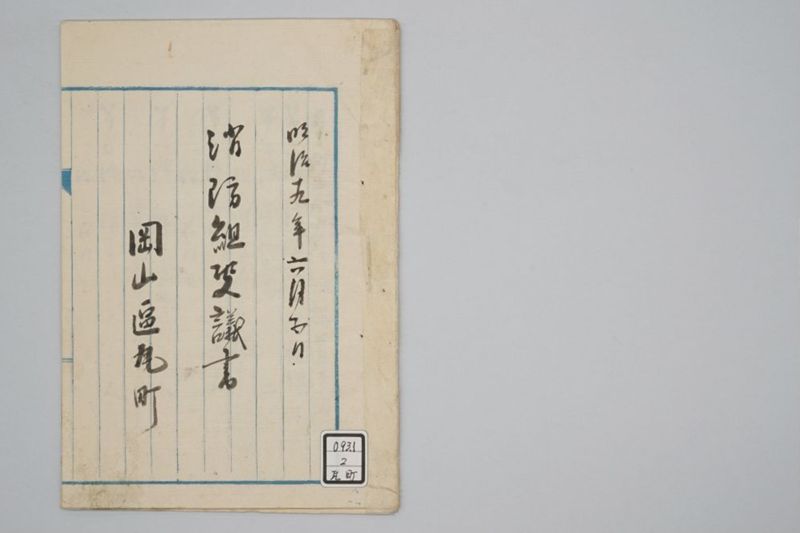 明治十九年六月五日
消防組決議書
岡山區瓦町
0931
2
瓦町